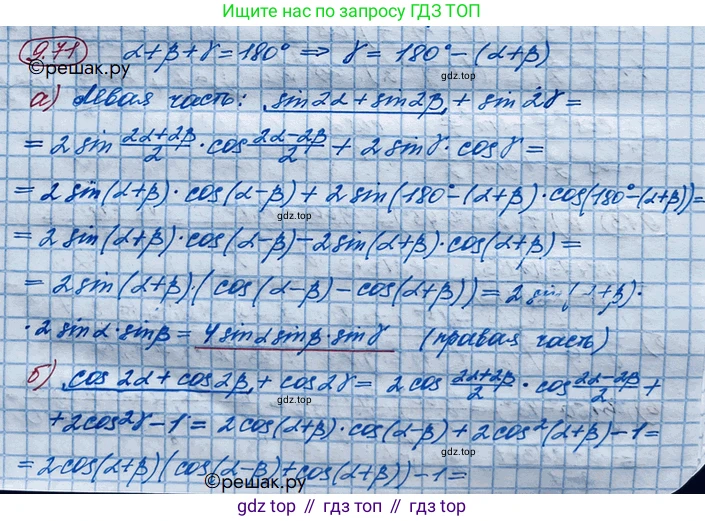 Ищите наши ответы по запросу ГДЗ ТОП
9.71 α+β+γ=180° ⇒ γ = 180°-(α+β)
©решак.ру
а) Левая часть: sin2α + sin2β + sin2γ =
= 2 sin (2α+2β)/2 · cos (2α-2β)/2 + 2sinγ·cosγ =
= 2 sin(α+β)·cos(α-β)+2 sin(180°-(α+β)·cos(180°-(α+β))=
gdz.top
= 2 sin(α+β)·cos(α-β)-2sin(α+β)·cos(α+β)=
= 2sin(α+β)·(cos(α-β)-cos(α+β))=2sin(α+β)·
·2sinα·sinβ= 4sinαsinβ·sinγ (правая часть)
gdz.top
б) cos2α+cos2β+cos2γ= 2cos (2α+2β)/2 · cos (2α-2β)/2 +
gdz.top
+2cos²γ-1= 2cos(α+β)·cos(α-β)+2cos²(α+β)-1=
=2cos(α+β)(cos(α-β)+cos(α+β))-1=
©решак.ру
gdz.top // гдз.топ // гдз.top